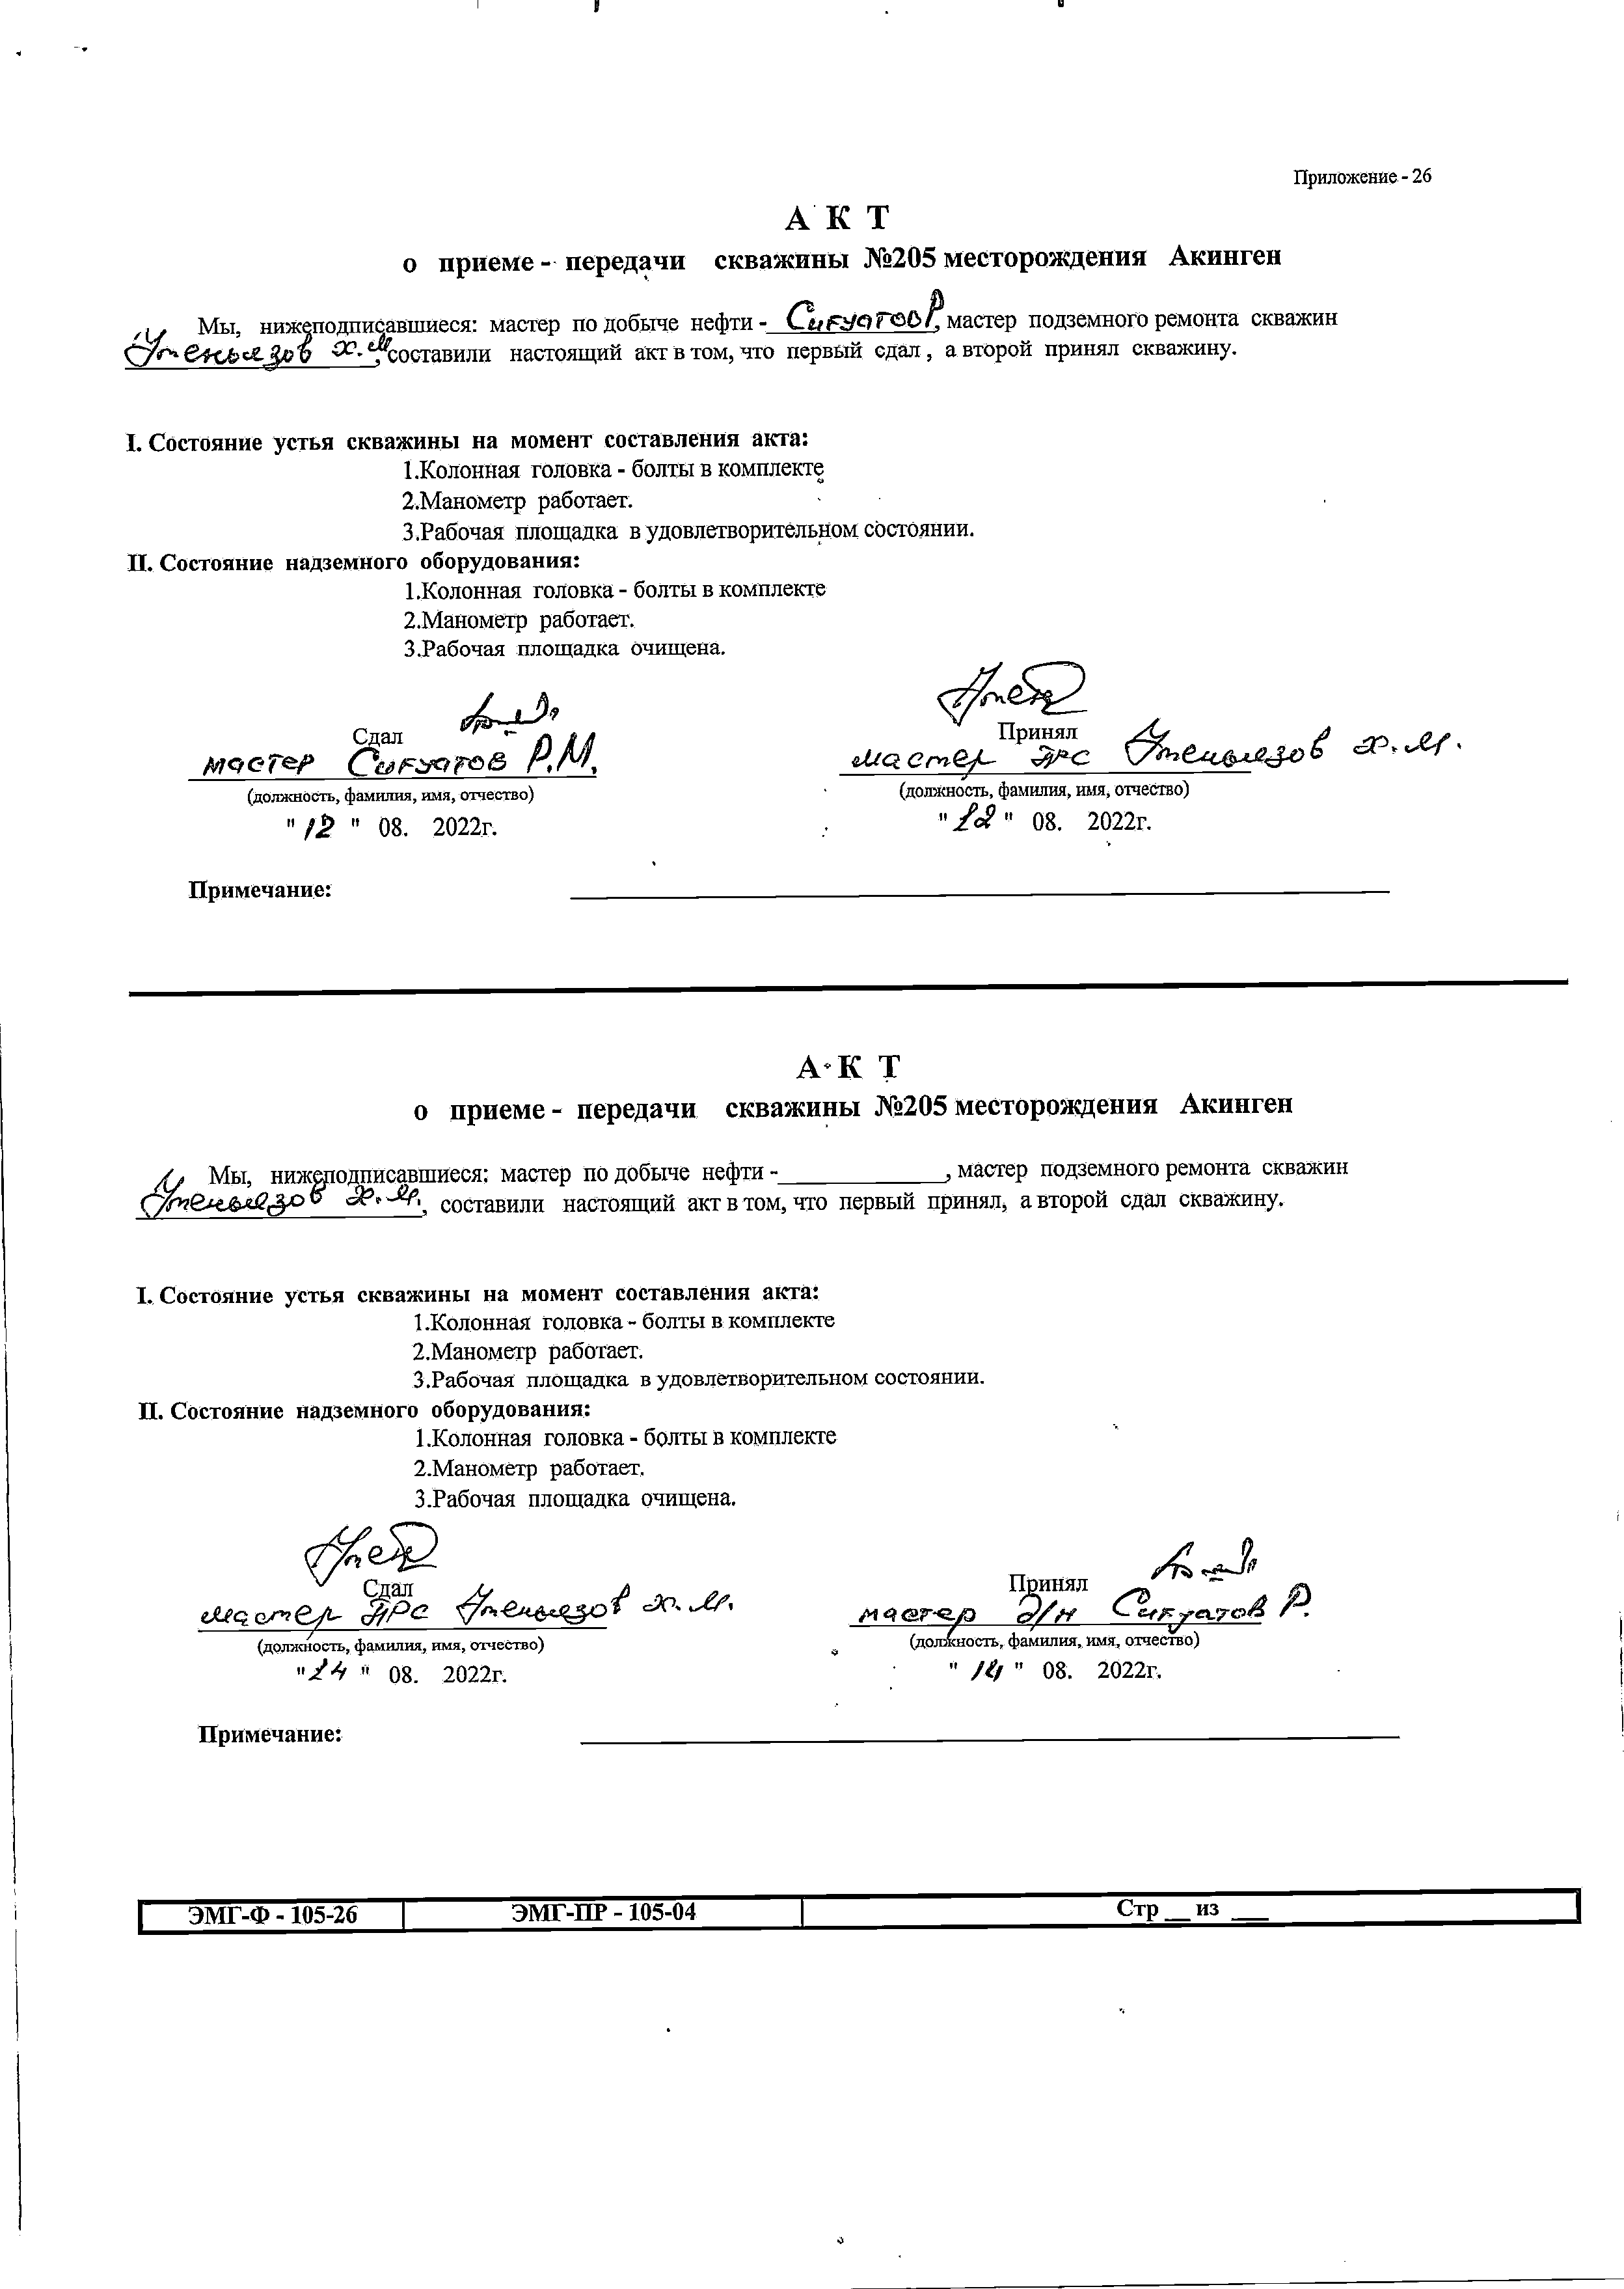 Приложение - 26
А К Т
о приеме - передачи скважины №205 месторождения Акинген
Мы, нижеподписавшиеся: мастер по добыче нефти - Сикуатов Р, мастер подземного ремонта скважин
Утеньязов Х.М, составили настоящий акт в том, что первый сдал , а второй принял скважину.
I. Состояние устья скважины на момент составления акта:
1.Колонная головка - болты в комплекте
2.Манометр работает.
3.Рабочая площадка в удовлетворительном состоянии.
II. Состояние надземного оборудования:
1.Колонная головка - болты в комплекте
2.Манометр работает.
3.Рабочая площадка очищена.
Сдал Принял
мастер Сикуатов Р.М. мастер ПРС Утеньязов Х.М.
(должность, фамилия, имя, отчество) (должность, фамилия, имя, отчество)
" 12 " 08. 2022г. " 12 " 08. 2022г.
Примечание:
А К Т
о приеме - передачи скважины №205 месторождения Акинген
Мы, нижеподписавшиеся: мастер по добыче нефти - , мастер подземного ремонта скважин
Утеньязов Х.М., составили настоящий акт в том, что первый принял, а второй сдал скважину.
I. Состояние устья скважины на момент составления акта:
1.Колонная головка - болты в комплекте
2.Манометр работает.
3.Рабочая площадка в удовлетворительном состоянии.
II. Состояние надземного оборудования:
1.Колонная головка - болты в комплекте
2.Манометр работает.
3.Рабочая площадка очищена.
Сдал Принял
мастер ПРС Утеньязов Х.М. мастер д/н Сикуатов Р.
(должность, фамилия, имя, отчество) (должность, фамилия, имя, отчество)
" 14 " 08. 2022г. " 14 " 08. 2022г.
Примечание:
ЭМГ-Ф - 105-26 ЭМГ-ПР - 105-04 Стр __ из ___